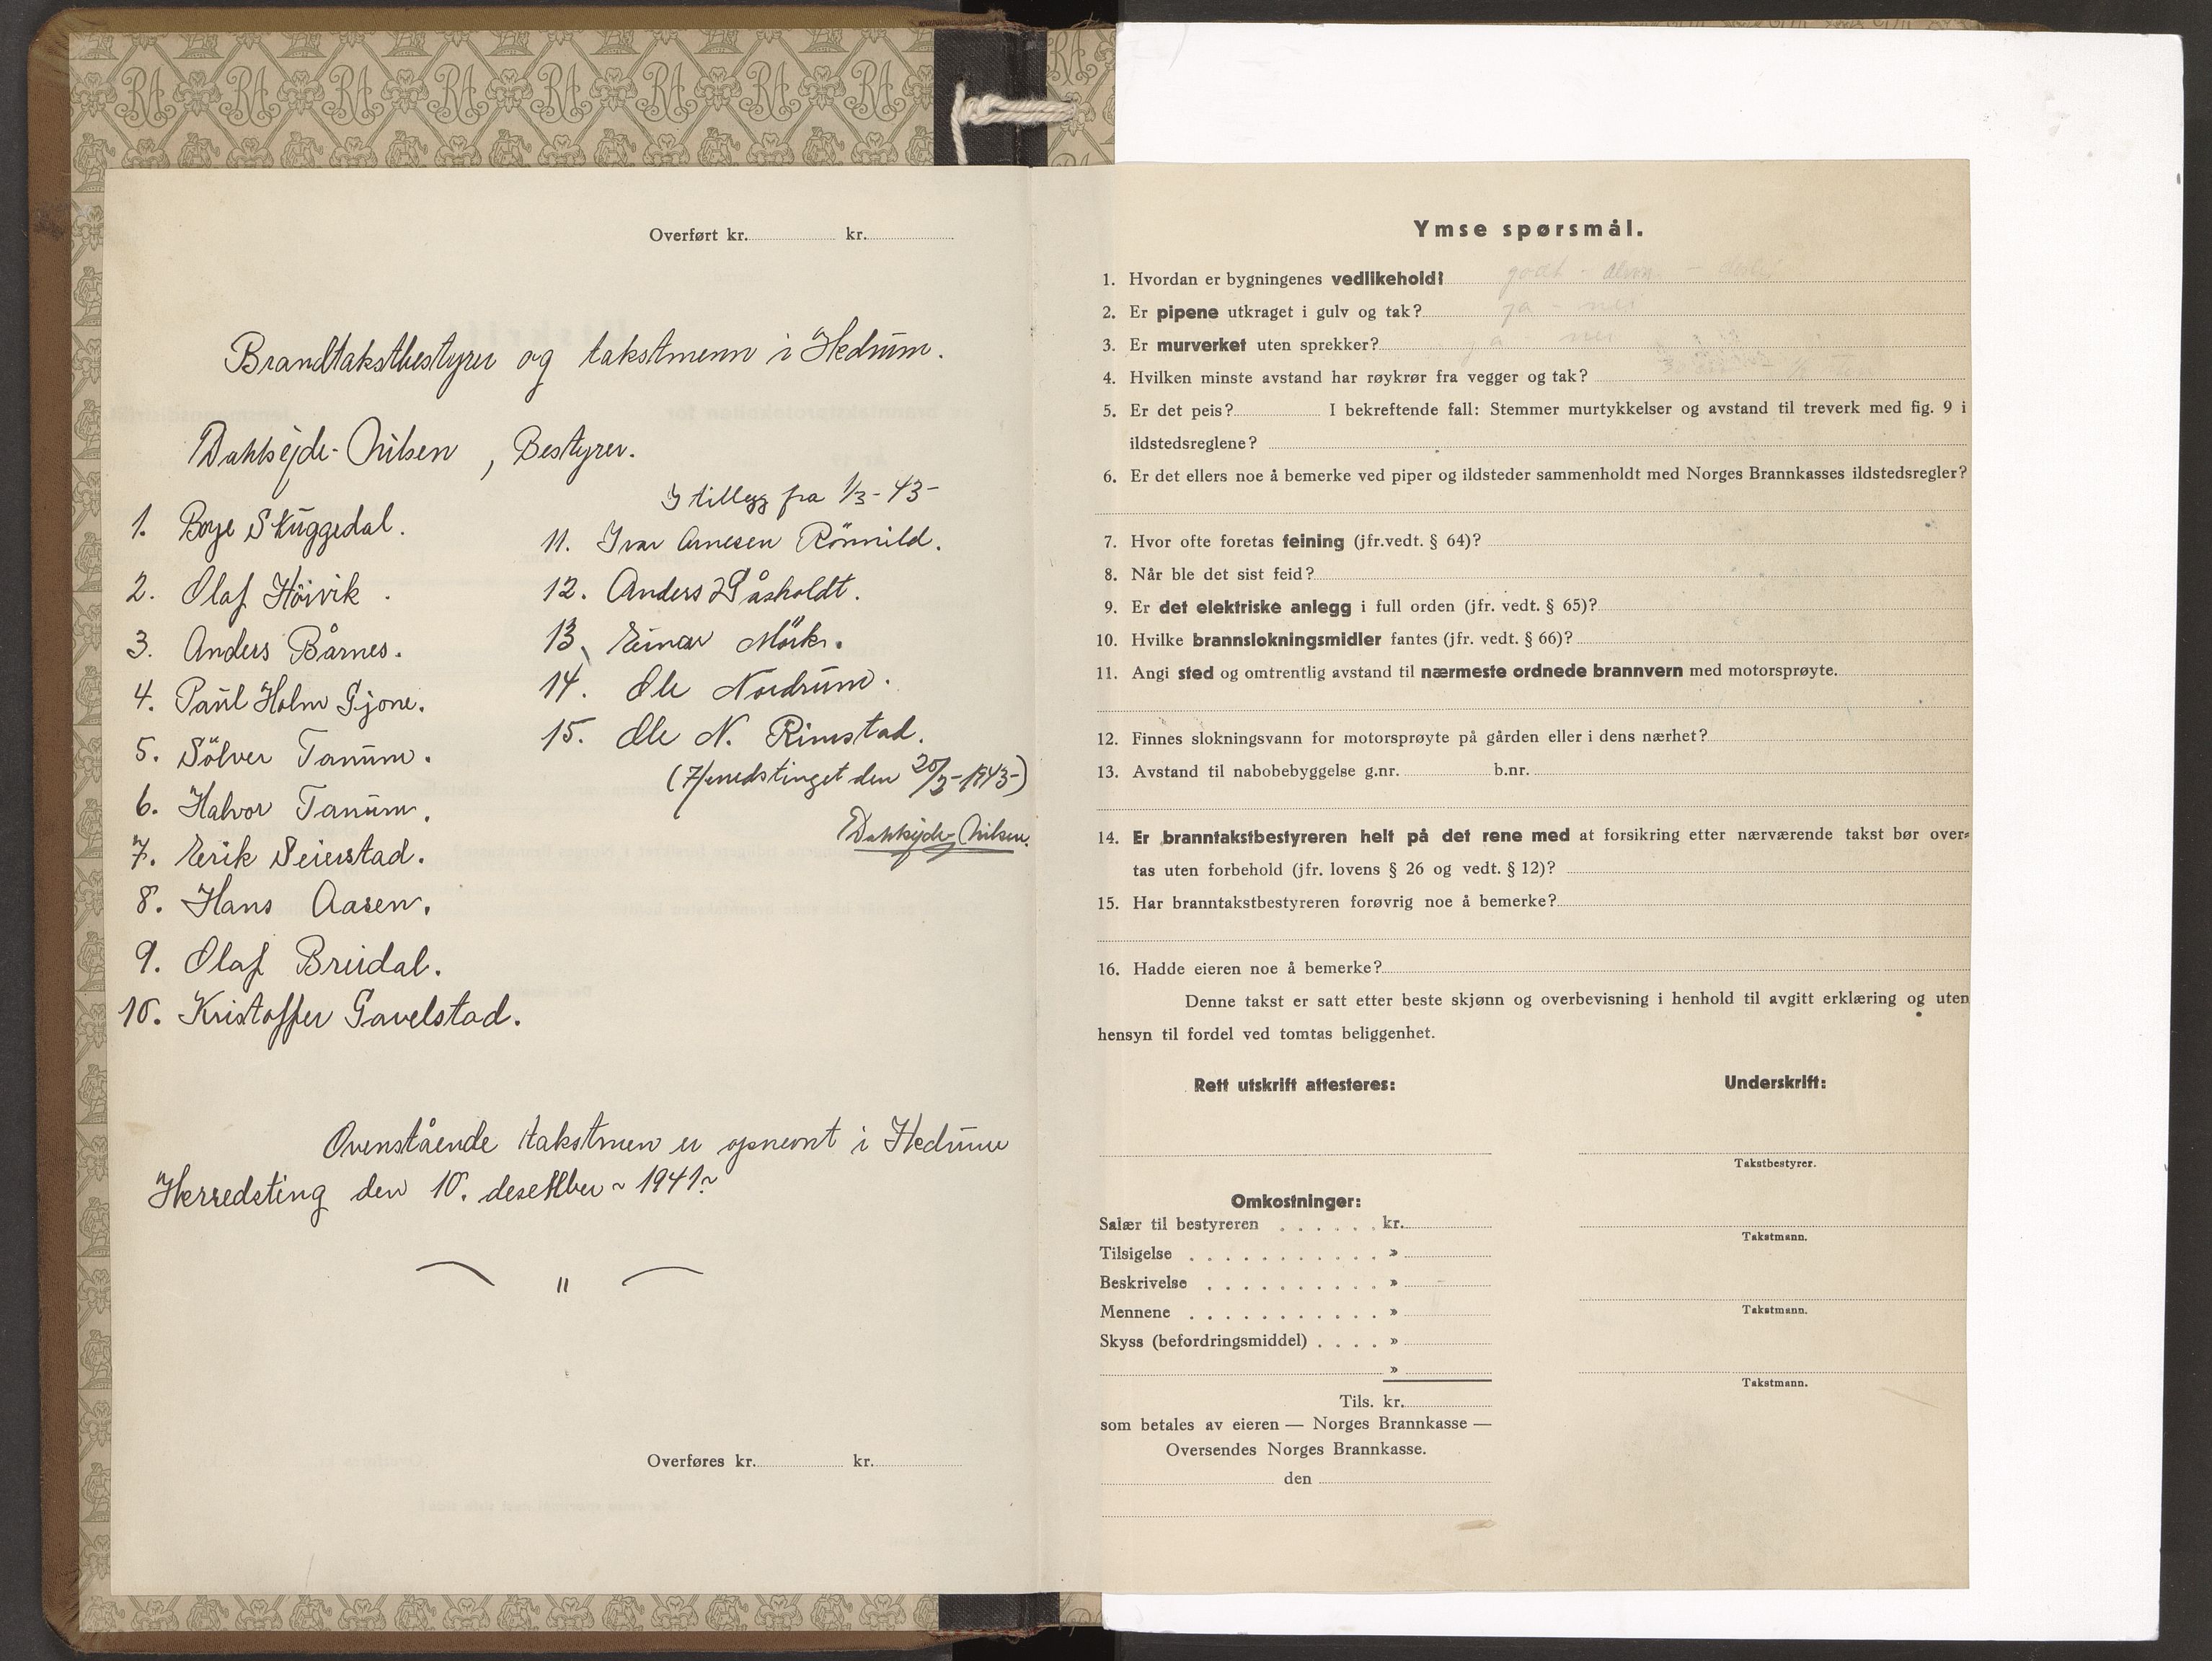 Overført kr. kr.
Brandtakstbestyrer og takstmenn i Hedrum.
Dahlsejde-Nilsen, Bestyrer.
1. Borge Skuggedal.
2. Olaf Höivik.
3. Anders Bårnes.
4. Paul Holm Gjone.
5. Sölver Tanum.
6. Halvor Tanum.
7. Erik Seierstad.
8. Hans Aasen.
9. Olaf Breidal.
10. Kristoffer Gavelstad.
I tillegg fra 1/3-43-
11. Ivar Arnesen Römnild.
12. Anders Gåsholdt.
13. Einar Mörk.
14. Ole Nordrum.
15. Ole N. Rimstad.
(Herredstinget den 20/2-1943-)
Dahlsejde-Nilsen.
Ovenstående takstmen er opnevnt i Hedrum
Herredsting den 10. desember ~ 1941 ~
"
Overføres kr. kr.
Ymse spørsmål.
1. Hvordan er bygningenes vedlikehold? godt -
2. Er pipene utkraget i gulv og tak? ja - nei
3. Er murverket uten sprekker? ja nei
4. Hvilken minste avstand har røykrør fra vegger og tak?
5. Er det peis? I bekreftende fall: Stemmer murtykkelser og avstand til treverk med fig. 9 i
ildstedsreglene?
6. Er det ellers noe å bemerke ved piper og ildsteder sammenholdt med Norges Brannkasses ildstedsregler?
7. Hvor ofte foretas feining (jfr.vedt. § 64)?
8. Når ble det sist feid?
9. Er det elektriske anlegg i full orden (jfr. vedt. § 65)?
10. Hvilke brannslokningsmidler fantes (jfr. vedt. § 66)?
11. Angi sted og omtrentlig avstand til nærmeste ordnede brannvern med motorsprøyte.
12. Finnes slokningsvann for motorsprøyte på gården eller i dens nærhet?
13. Avstand til nabobebyggelse g.nr. b.nr.
14. Er branntakstbestyreren helt på det rene med at forsikring etter nærværende takst bør over-
tas uten forbehold (jfr. lovens § 26 og vedt. § 12)?
15. Har branntakstbestyreren forøvrig noe å bemerke?
16. Hadde eieren noe å bemerke?
Denne takst er satt etter beste skjønn og overbevisning i henhold til avgitt erklæring og uten
hensyn til fordel ved tomtas beliggenhet.
Rett utskrift attesteres:
Underskrift:
Takstbestyrer.
Omkostninger:
Salær til bestyreren . . . . . . kr.
Takstmann.
Tilsigelse . . . . . . . . . . . »
Beskrivelse . . . . . . . . . . »
Mennene . . . . . . . . . . . »
Takstmann.
Skyss (befordringsmiddel) . . . . »
»
Takstmann.
Tils. kr.
som betales av eieren — Norges Brannkasse —
Oversendes Norges Brannkasse.
den